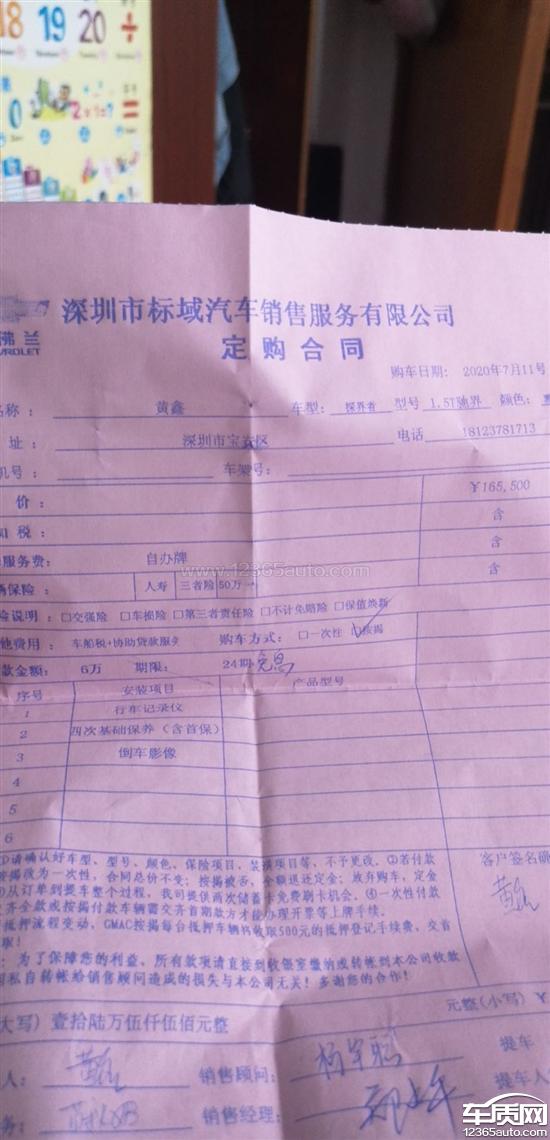 18 19 20 ÷
深圳市标域汽车销售服务有限公司
佛兰
VROLET
定购合同
购车日期: 2020年7月11号
名称: 黄鑫 车型: 探界者 型号 1.5T驰界 颜色:
址: 深圳市宝安区 电话 18123781713
机号: 车架号:
价: ¥165,500
税: 含
含
服务费: 自办牌 含
www.12365auto.com
保险: 人寿 三者险50万
险说明: □交强险 □车损险 □第三者责任险 □不计免赔险 □保值焕新
他费用: 车船税+协助贷款服务 购车方式: □一次性 ☑按揭
款金额: 6万 期限: 24期 免息
序号 安装项目 产品型号
1 行车记录仪
2 四次基础保养(含首保)
3 倒车影像
4
5
6
①请确认好车型、型号、颜色、保险项目、装潢项目等、不予更改。②若付款
按揭改为一次性,合同总价不变;按揭被否,全额退还定金;放弃购车,定金
③从订单到提车整个过程,我司提供两次储蓄卡免费刷卡机会。④一次性付款
交齐全款或按揭付款车辆需交齐首期款方才能办理开票等上牌手续。
抵押流程变动,GMAC按揭每台抵押车辆将收取500元的抵押登记手续费,交首
取!
客户签名确
:为了保障您的利益,所有款项请直接到收银室缴纳或转帐到本公司收款
因私自转帐给销售顾问造成的损失与本公司无关!多谢您的合作!
大写)壹拾陆万伍仟伍佰元整 元整(小写)¥
人: 销售顾问: 提车
务: 销售经理: 提车人
车质网
12365auto.com